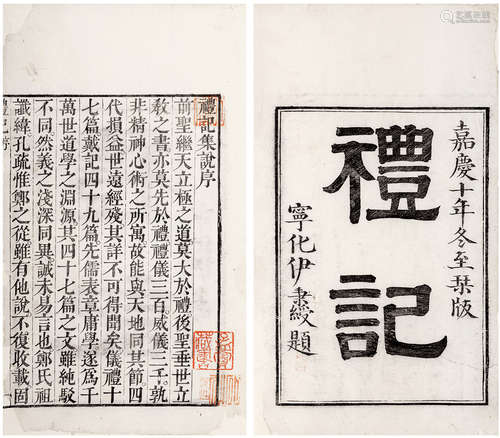 嘉慶十年冬至栞版
禮記
寧化伊秉綬題
禮記集說序
前聖繼天立極之道莫大於禮後聖垂世立
教之書亦莫先於禮禮儀三百威儀三千孰
非精神心術之所寓故能與天地同其節四
代損益世遠經殘其詳不可得聞矣儀禮十
七篇戴記四十九篇先儒表章庸學遂為千
萬世道學之淵源其四十七篇之文雖純駁
不同然義之淺深同異誠未易言也鄭氏祖
讖緯孔疏惟鄭之從雖有他說不復收載固
禮記序